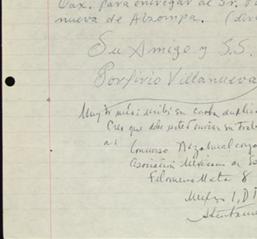 Oax. para entregar al Sr.
nueva de Atzompa.
Su Amigo y S.S.
Porfirio Villanueva
Muy Sr mío: recibí su carta
Creo que debe usted enviar su trab
a:
Concurso Nezahualcoyo
Asociación Mexicana de
Filomeno Mata 8
México 1, D F
Atentame